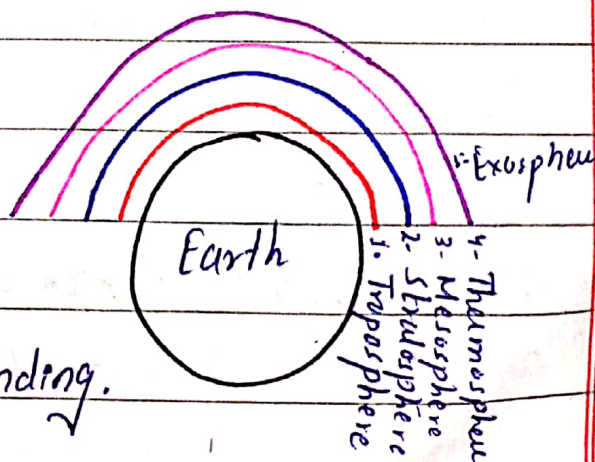 5- Exosphere
Earth
1. Troposphere
2- Stratosphere
3- Mesosphere
4- Thermosphere
nding.